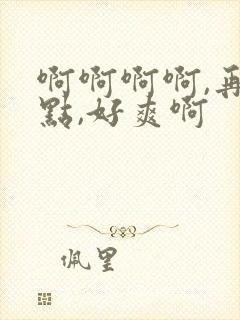 啊啊啊啊,再
點,好爽啊
佩里